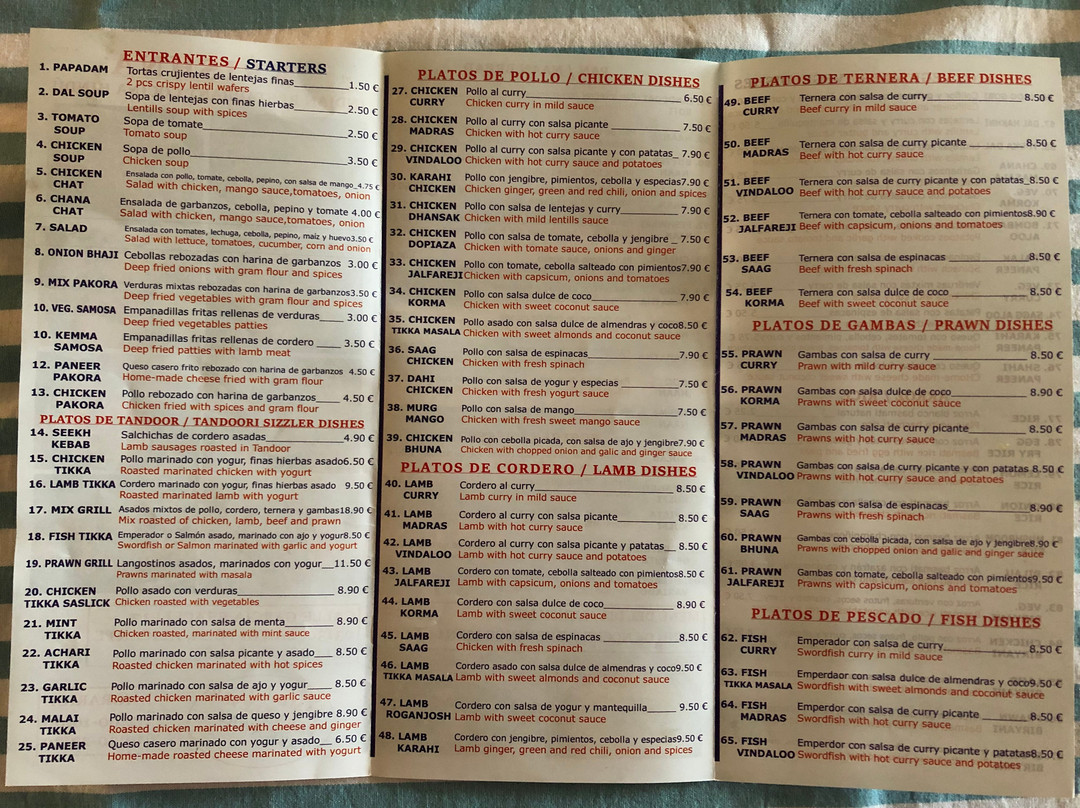 ENTRANTES / STARTERS
1. PAPADAM Tortas crujientes de lentejas finas 1.50 €
2 pcs crispy lentil wafers
2. DAL SOUP Sopa de lentejas con finas hierbas 2.50 €
Lentills soup with spices
3. TOMATO SOUP Sopa de tomate 2.50 €
Tomato soup
4. CHICKEN SOUP Sopa de pollo 3.50 €
Chicken soup
5. CHICKEN CHAT Ensalada con pollo, tomate, cebolla, pepino, con salsa de mango 4.75 €
Salad with chicken, mango sauce,tomatoes, onion
6. CHANA CHAT Ensalada de garbanzos, cebolla, pepino y tomate 4.00 €
Salad with chicken, mango sauce,tomatoes, onion
7. SALAD Ensalada con tomates, lechuga, cebolla, pepino, maiz y huevo 3.50 €
Salad with lettuce, tomatoes, cucumber, corn and onion
8. ONION BHAJI Cebollas rebozadas con harina de garbanzos 3.00 €
Deep fried onions with gram flour and spices
9. MIX PAKORA Verduras mixtas rebozadas con harina de garbanzos 3.50 €
Deep fried vegetables with gram flour and spices
10. VEG. SAMOSA Empanadillas fritas rellenas de verduras 3.00 €
Deep fried vegetables patties
10. KEMMA SAMOSA Empanadillas fritas rellenas de cordero 3.50 €
Deep fried patties with lamb meat
12. PANEER PAKORA Queso casero frito rebozado con harina de garbanzos 4.50 €
Home-made cheese fried with gram flour
13. CHICKEN PAKORA Pollo rebozado con harina de garbanzos 4.50 €
Chicken fried with spices and gram flour
PLATOS DE TANDOOR / TANDOORI SIZZLER DISHES
14. SEEKH KEBAB Salchichas de cordero asadas 4.90 €
Lamb sausages roasted in Tandoor
15. CHICKEN TIKKA Pollo marinado con yogur, finas hierbas asado 6.50 €
Roasted marinated chicken with yogurt
16. LAMB TIKKA Cordero marinado con yogur, finas hierbas asado 9.50 €
Roasted marinated lamb with yogurt
17. MIX GRILL Asados mixtos de pollo, cordero, ternera y gambas 18.90 €
Mix roasted of chicken, lamb, beef and prawn
18. FISH TIKKA Emperador o Salmón asado, marinado con ajo y yogur 8.50 €
Swordfish or Salmon marinated with garlic and yogurt
19. PRAWN GRILL Langostinos asados, marinados con yogur 11.50 €
Prawns marinated with masala
20. CHICKEN TIKKA SASLICK Pollo asado con verduras 8.90 €
Chicken roasted with vegetables
21. MINT TIKKA Pollo marinado con salsa de menta 8.90 €
Chicken roasted, marinated with mint sauce
22. ACHARI TIKKA Pollo marinado con salsa picante y asado 8.50 €
Roasted chicken marinated with hot spices
23. GARLIC TIKKA Pollo marinado con salsa de ajo y yogur 8.50 €
Roasted chicken marinated with garlic sauce
24. MALAI TIKKA Pollo marinado con salsa de queso y jengibre 8.90 €
Roasted chicken marinated with cheese and ginger
25. PANEER TIKKA Queso casero marinado con yogur y asado 6.50 €
Home-made roasted cheese marinated with yogurt
PLATOS DE POLLO / CHICKEN DISHES
27. CHICKEN CURRY Pollo al curry 6.50 €
Chicken curry in mild sauce
28. CHICKEN MADRAS Pollo al curry con salsa picante 7.50 €
Chicken with hot curry sauce
29. CHICKEN VINDALOO Pollo al curry con salsa picante y con patatas 7.90 €
Chicken with hot curry sauce and potatoes
30. KARAHI CHICKEN Pollo con jengibre, pimientos, cebolla y especias 7.90 €
Chicken ginger, green and red chili, onion and spices
31. CHICKEN DHANSAK Pollo con salsa de lentejas y curry 7.90 €
Chicken with mild lentills sauce
32. CHICKEN DOPIAZA Pollo con salsa de tomate, cebolla y jengibre 7.50 €
Chicken with tomate sauce, onions and ginger
33. CHICKEN JALFAREJI Pollo con tomate, cebolla salteado con pimientos 7.90 €
Chicken with capsicum, onions and tomatoes
34. CHICKEN KORMA Pollo con salsa dulce de coco 7.90 €
Chicken with sweet coconut sauce
35. CHICKEN TIKKA MASALA Pollo asado con salsa dulce de almendras y coco 8.50 €
Chicken with sweet almonds and coconut sauce
36. SAAG CHICKEN Pollo con salsa de espinacas 7.90 €
Chicken with fresh spinach
37. DAHI CHICKEN Pollo con salsa de yogur y especias 7.50 €
Chicken with fresh yogurt sauce
38. MURG MANGO Pollo con salsa de mango 7.50 €
Chicken with fresh sweet mango sauce
39. CHICKEN BHUNA Pollo con cebolla picada, con salsa de ajo y jengibre 7.90 €
Chicken with chopped onion and galic and ginger sauce
PLATOS DE CORDERO / LAMB DISHES
40. LAMB CURRY Cordero al curry 8.50 €
Lamb curry in mild sauce
41. LAMB MADRAS Cordero al curry con salsa picante 8.50 €
Lamb with hot curry sauce
42. LAMB VINDALOO Cordero al curry con salsa picante y patatas 8.50 €
Lamb with hot curry sauce and potatoes
43. LAMB JALFAREJI Cordero con tomate, cebolla salteado con pimientos 8.50 €
Lamb with capsicum, onions and tomatoes
44. LAMB KORMA Cordero con salsa dulce de coco 8.90 €
Lamb with sweet coconut sauce
45. LAMB SAAG Cordero con salsa de espinacas 8.50 €
Chicken with fresh spinach
46. LAMB TIKKA MASALA Cordero asado con salsa dulce de almendras y coco 9.50 €
Lamb with sweet almonds and coconut sauce
47. LAMB ROGANJOSH Cordero con salsa de yogur y mantequilla 9.50 €
Lamb with sweet coconut sauce
48. LAMB KARAHI Cordero con jengibre, pimientos, cebolla y especias 9.50 €
Lamb ginger, green and red chili, onion and spices
PLATOS DE TERNERA / BEEF DISHES
49. BEEF CURRY Ternera con salsa de curry 8.50 €
Beef curry in mild sauce
50. BEEF MADRAS Ternera con salsa de curry picante 8.50 €
Beef with hot curry sauce
51. BEEF VINDALOO Ternera con salsa de curry picante y con patatas 8.50 €
Beef with hot curry sauce and potatoes
52. BEEF JALFAREJI Ternera con tomate, cebolla salteado con pimientos 8.90 €
Beef with capsicum, onions and tomatoes
53. BEEF SAAG Ternera con salsa de espinacas 8.50 €
Beef with fresh spinach
54. BEEF KORMA Ternera con salsa dulce de coco 8.50 €
Beef with sweet coconut sauce
PLATOS DE GAMBAS / PRAWN DISHES
55. PRAWN CURRY Gambas con salsa de curry 8.50 €
Prawn with mild curry sauce
56. PRAWN KORMA Gambas con salsa dulce de coco 8.90 €
Prawns with sweet coconut sauce
57. PRAWN MADRAS Gambas con salsa de curry picante 8.50 €
Prawns with hot curry sauce
58. PRAWN VINDALOO Gambas con salsa de curry picante y con patatas 8.50 €
Prawns with hot curry sauce and potatoes
59. PRAWN SAAG Gambas con salsa de espinacas 8.90 €
Prawns with fresh spinach
60. PRAWN BHUNA Gambas con cebolla picada, con salsa de ajo y jengibre 8.90 €
Prawns with chopped onion and galic and ginger sauce
61. PRAWN JALFAREJI Gambas con tomate, cebolla salteado con pimientos 9.50 €
Prawns with capsicum, onions and tomatoes
PLATOS DE PESCADO / FISH DISHES
62. FISH CURRY Emperador con salsa de curry 8.50 €
Swordfish curry in mild sauce
63. FISH TIKKA MASALA Emperdaor con salsa dulce de almendras y coco 9.50 €
Swordfish with sweet almonds and coconut sauce
64. FISH MADRAS Emperdor con salsa de curry picante 8.50 €
Swordfish with hot curry sauce
65. FISH VINDALOO Emperdor con salsa de curry picante y patatas 8.50 €
Swordfish with hot curry sauce and potatoes